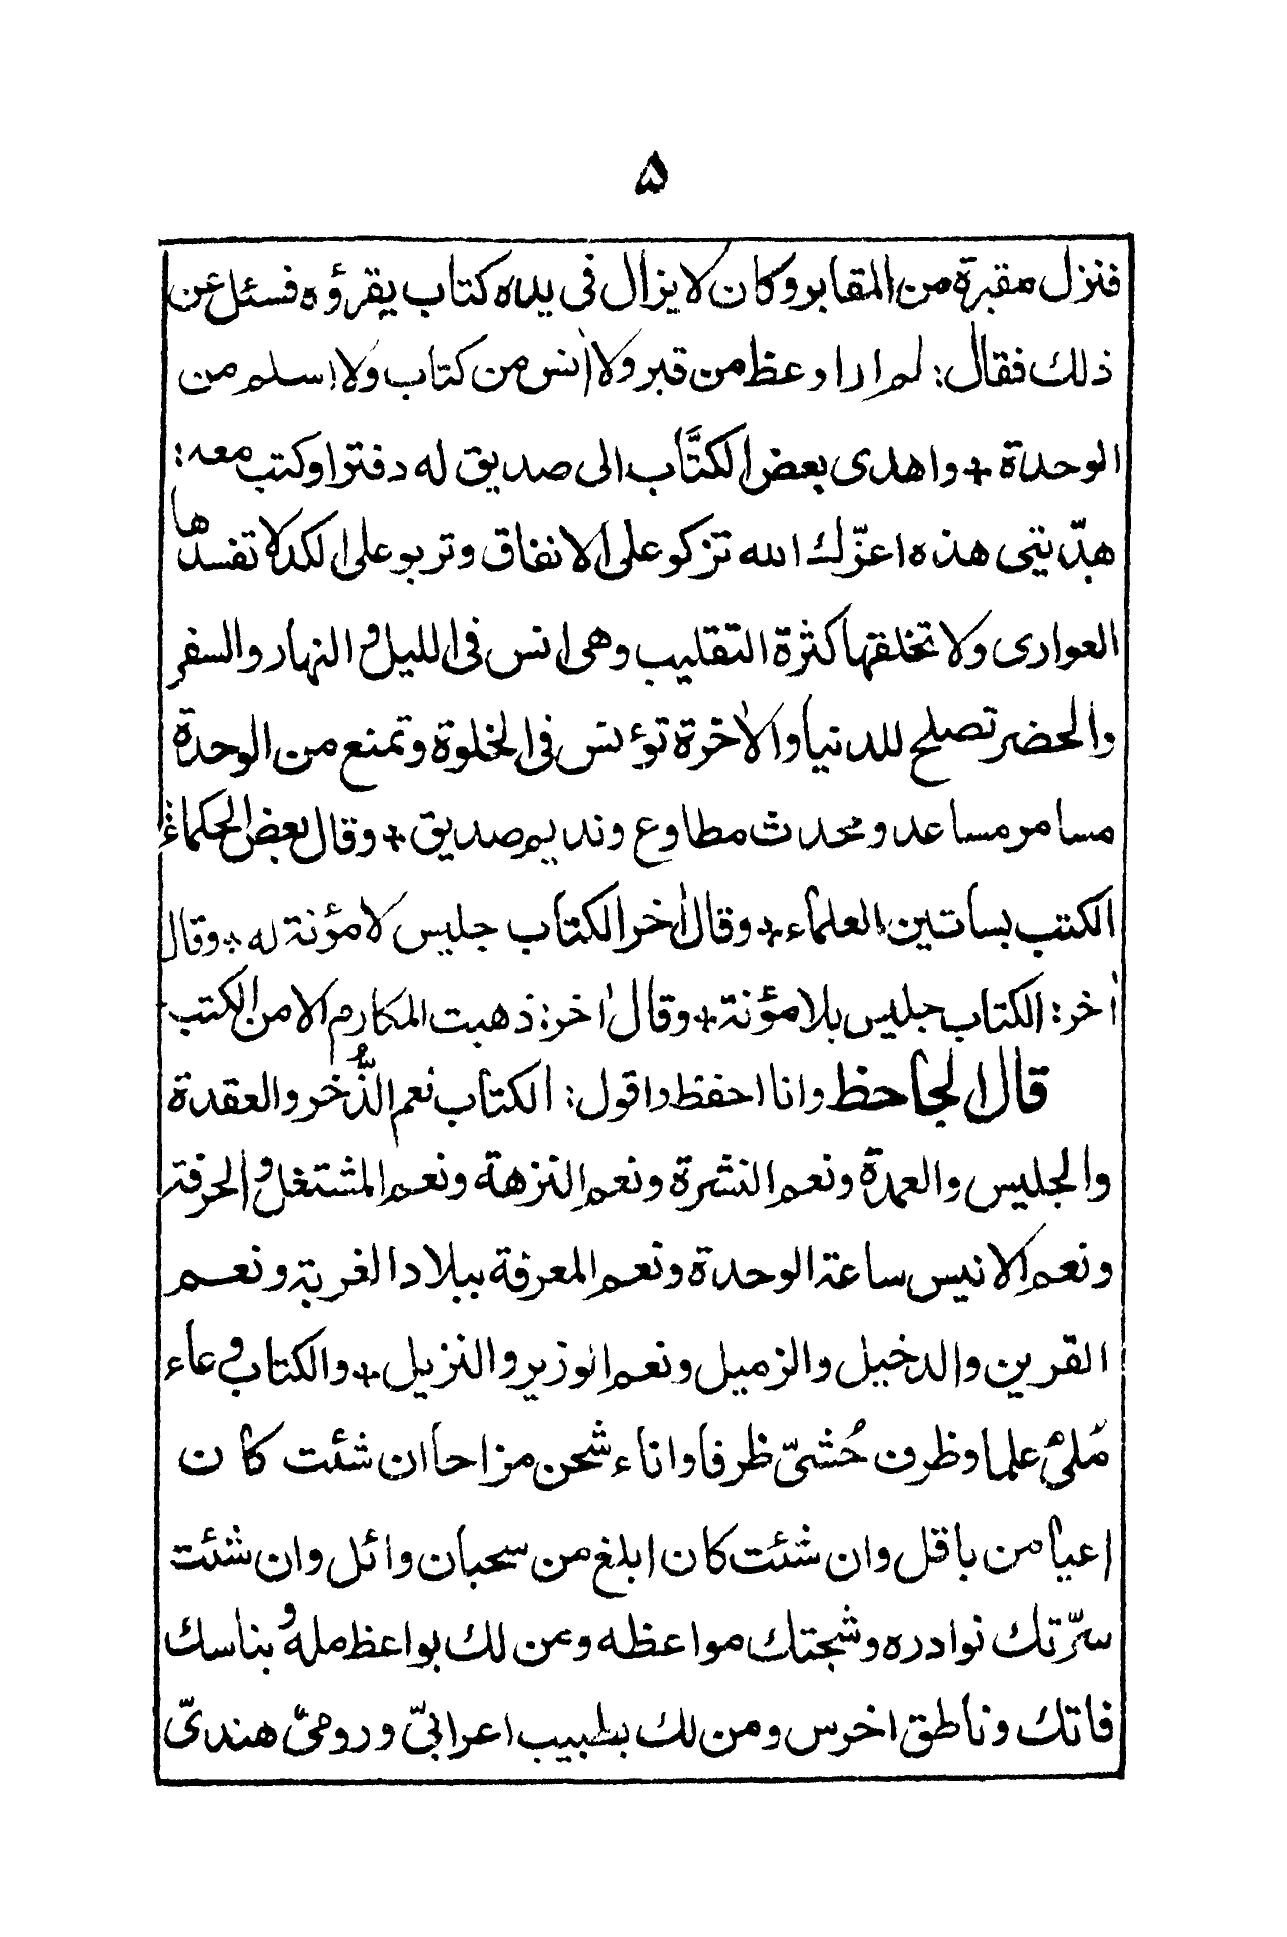 ۵
فنزل مقبرة من المقابر وكان لا يزال فى يده كتاب يقرؤه فسئل عن
ذلك فقال: لم ار اوعظ من قبر ولا اٰنس من كتاب ولا اسلم من
الوحدة + واهدى بعض الكتَّاب الى صديق له دفترا وكتب معه:
هدّيتى هذه اعزّك الله تزكو على الانفاق وتربو على الكد لا تفسدها
العوارى ولا تخلقها كثرة التقليب وهى انس فى الليل و النهار والسفر
والحضر تصلح للدنيا والاٰخرة تؤنس فى الخلوة وتمنع من الوحدة
مسامر مساعد ومحدث مطاوع ونديم صديق + وقال بعض الحكماء
الكتب بساتين العلماء + وقال اٰخر الكتاب جليس لا مؤنة له + وقال
اٰخر: الكتاب جليس بلا مؤنة + وقال اٰخر: ذهبت المكارم الا من الكتب
قال الجاحظ وانا احفظ واقول: الكتاب نعم الذُّخر والعقدة
والجليس والعمدة ونعم النشرة ونعم النزهة ونعم المشتغل و الحرفة
ونعم الانيس ساعة الوحدة ونعم المعرفة ببلاد الغربة ونعم
القرين والدخيل والزميل ونعم الوزير والنزيل + والكتاب وعاء
مُلئ علما وظرف حُشىّ ظرفا واناء شحن مزاحا ان شئت كان
اعيا من باقل وان شئت كان ابلغ من سحبان وائل وان شئت
سرّتك نوادره وشجتك مواعظه ومن لك بواعظ مله و بناسك
فاتك وناطق اخرس ومن لك بطبيب اعرابىّ ورومىّ هندىّ